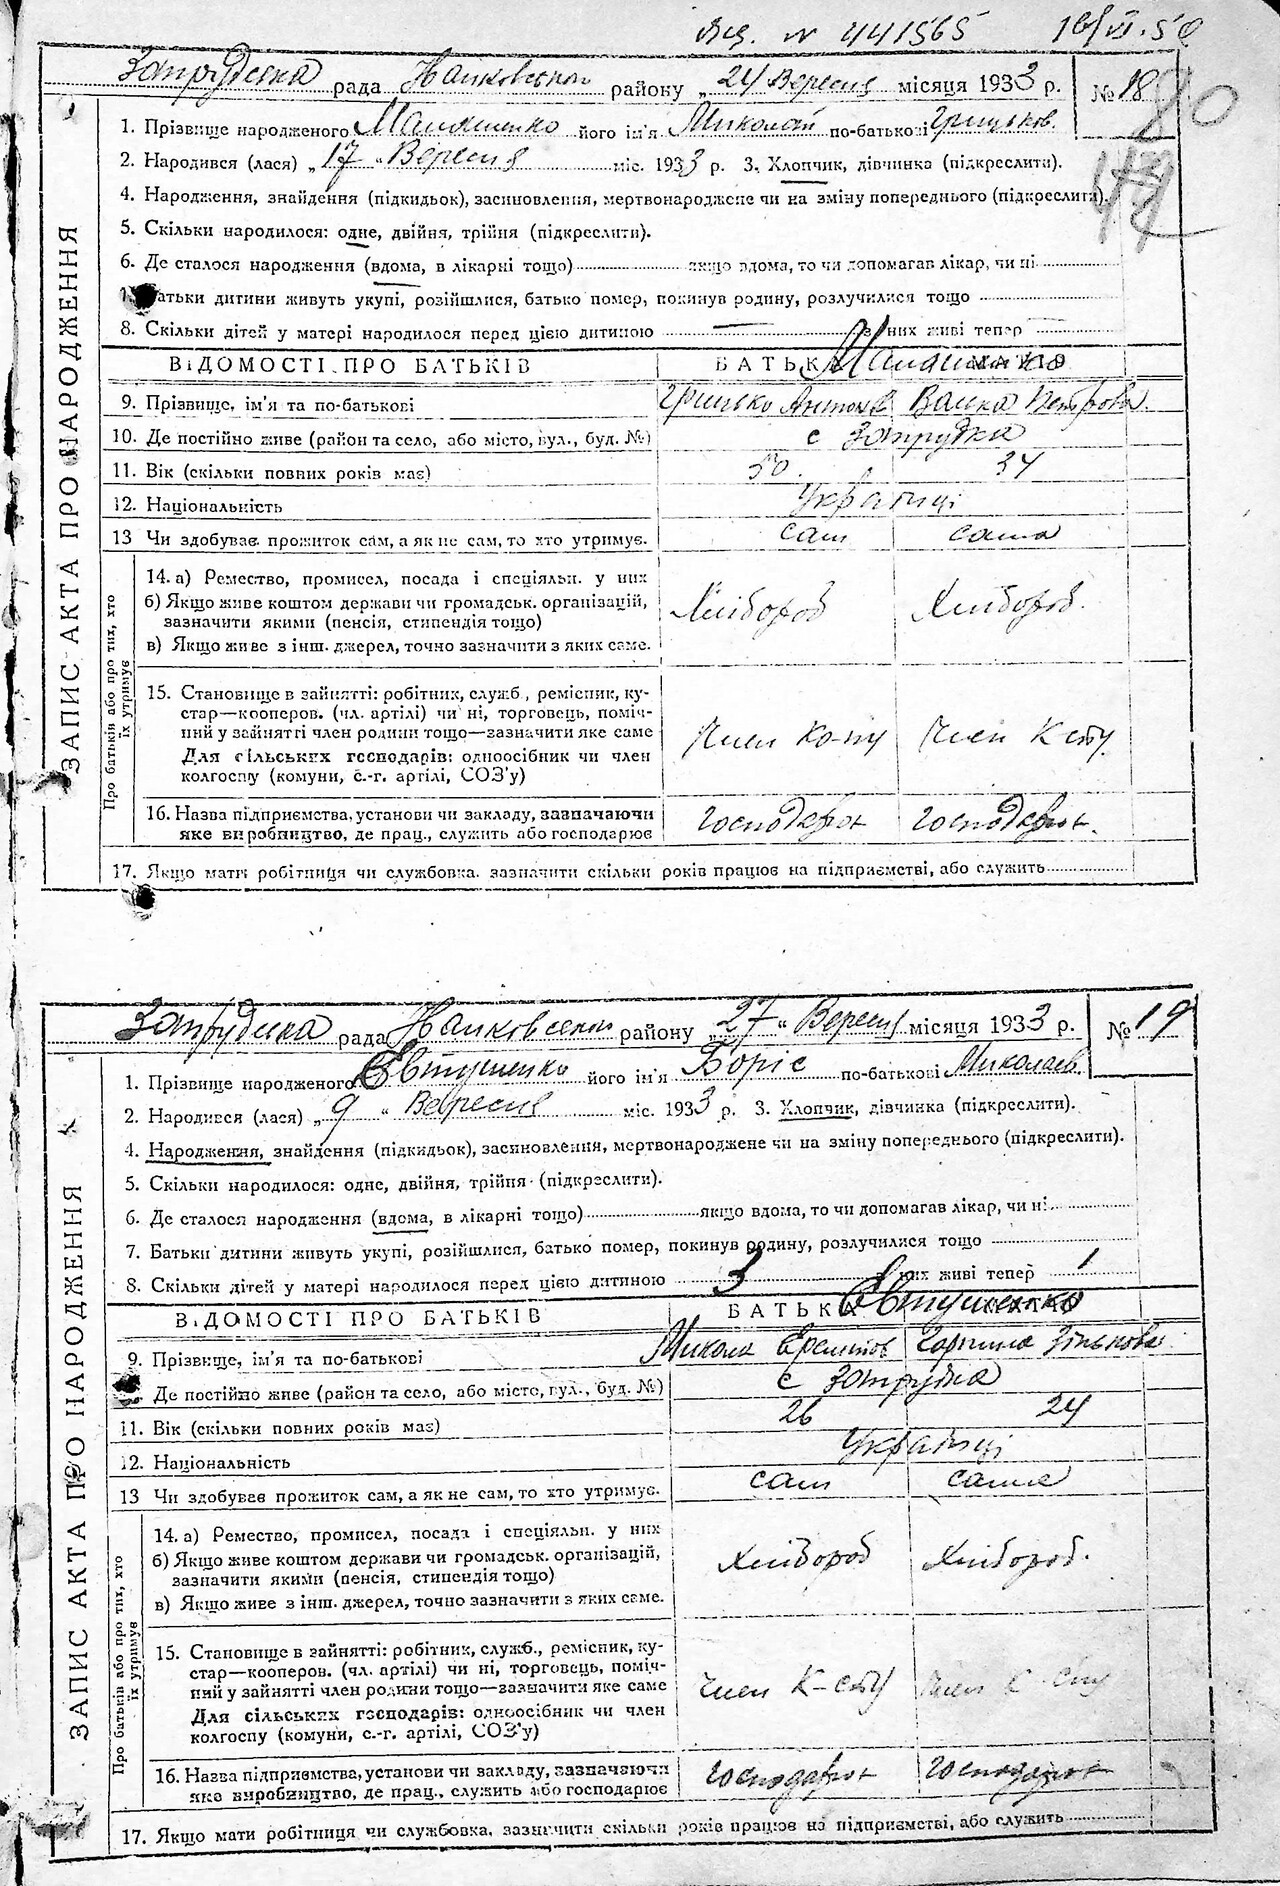 № 441565 16/VI.50
Запрудська рада Наиковським району „24 Вересня місяця 1933 р. № 18
20
1. Прізвище народженого Малашенко його ім'я Миколай по-батькові Грицьков.
2. Народився (лася) „17" Вересня міс. 1933 р. 3. Хлопчик, дівчинка (підкреслити).
4. Народження, знайдення (підкидьок), засиновлення, мертвонароджене чи на зміну попереднього (підкреслити).
5. Скільки народилося: одне, двійня, трійня (підкреслити).
6. Де сталося народження (вдома, в лікарні тощо) якщо вдома, то чи допомагав лікар, чи ні
Батьки дитини живуть укупі, розійшлися, батько помер, покинув родину, розлучилися тощо
8. Скільки дітей у матері народилося перед цією дитиною — з них живі тепер —
ЗАПИС АКТА ПРО НАРОДЖЕННЯ
ВІДОМОСТІ ПРО БАТЬКІВ БАТЬКА Малашенко МАТІР
9. Прізвище, ім'я та по-батькові Грицько Антонів Петрова
10. Де постійно живе (район та село, або місто, вул., буд. №) с Запрудка
11. Вік (скільки повних років має) 50. 34
12. Національність Українці
13 Чи здобуває прожиток сам, а як не сам, то хто утримує. сам сама
Про батьків або про тих, хто їх утримує
14. а) Ремество, промисел, посада і спеціяльн. у них
б) Якщо живе коштом держави чи громадськ. організацій, Хлібороб Хлібороб.
зазначити якими (пенсія, стипендія тощо)
в) Якщо живе з інш. джерел, точно зазначити з яких саме.
15. Становище в зайнятті: робітник, служб., ремісник, ку-
стар—кооперов. (чл. артілі) чи ні, торговець, поміч-
ний у зайнятті член родини тощо—зазначити яке саме Член Ко-пу Член К сту
Для сільських господарів: одноосібник чи член
колгоспу (комуни, с.-г. артілі, СОЗ'у)
16. Назва підприємства, установи чи закладу, зазначаючи Господарює Господарює.
яке виробництво, де прац., служить або господарює
17. Якщо мати робітниця чи службовка, зазначити скільки років працює на підприємстві, або служить
Запрудська рада Наиковським району „27" Вересня місяця 1933 р. № 19
1. Прізвище народженого Євтушенко його ім'я Боріс по-батькові Миколаєв.
2. Народився (лася) „9" Вересня міс. 1933 р. 3. Хлопчик, дівчинка (підкреслити).
4. Народження, знайдення (підкидьок), засиновлення, мертвонароджене чи на зміну попереднього (підкреслити).
5. Скільки народилося: одне, двійня, трійня (підкреслити).
6. Де сталося народження (вдома, в лікарні тощо) якщо вдома, то чи допомагав лікар, чи ні
7. Батьки дитини живуть укупі, розійшлися, батько помер, покинув родину, розлучилися тощо
8. Скільки дітей у матері народилося перед цією дитиною 3 з них живі тепер 1
ЗАПИС АКТА ПРО НАРОДЖЕННЯ
ВІДОМОСТІ ПРО БАТЬКІВ БАТЬКА Євтушенко
9. Прізвище, ім'я та по-батькові Микола Горпина Зінькова
Де постійно живе (район та село, або місто, вул., буд. №) с Запрудка
11. Вік (скільки повних років має) 26 24
12. Національність Українці
13 Чи здобуває прожиток сам, а як не сам, то хто утримує. сам сама
Про батьків або про тих, хто їх утримує
14. а) Ремество, промисел, посада і спеціяльн. у них
б) Якщо живе коштом держави чи громадськ. організацій, Хлібороб Хлібороб.
зазначити якими (пенсія, стипендія тощо)
в) Якщо живе з інш. джерел, точно зазначити з яких саме.
15. Становище в зайнятті: робітник, служб., ремісник, ку-
стар—кооперов. (чл. артілі) чи ні, торговець, поміч-
ний у зайнятті член родини тощо—зазначити яке саме Член К-сту Член К сту
Для сільських господарів: одноосібник чи член
колгоспу (комуни, с.-г. артілі, СОЗ'у)
16. Назва підприємства, установи чи закладу, зазначаючи Господарює Господарює
яке виробництво, де прац., служить або господарює
17. Якщо мати робітниця чи службовка, зазначити скільки років працює на підприємстві, або служить